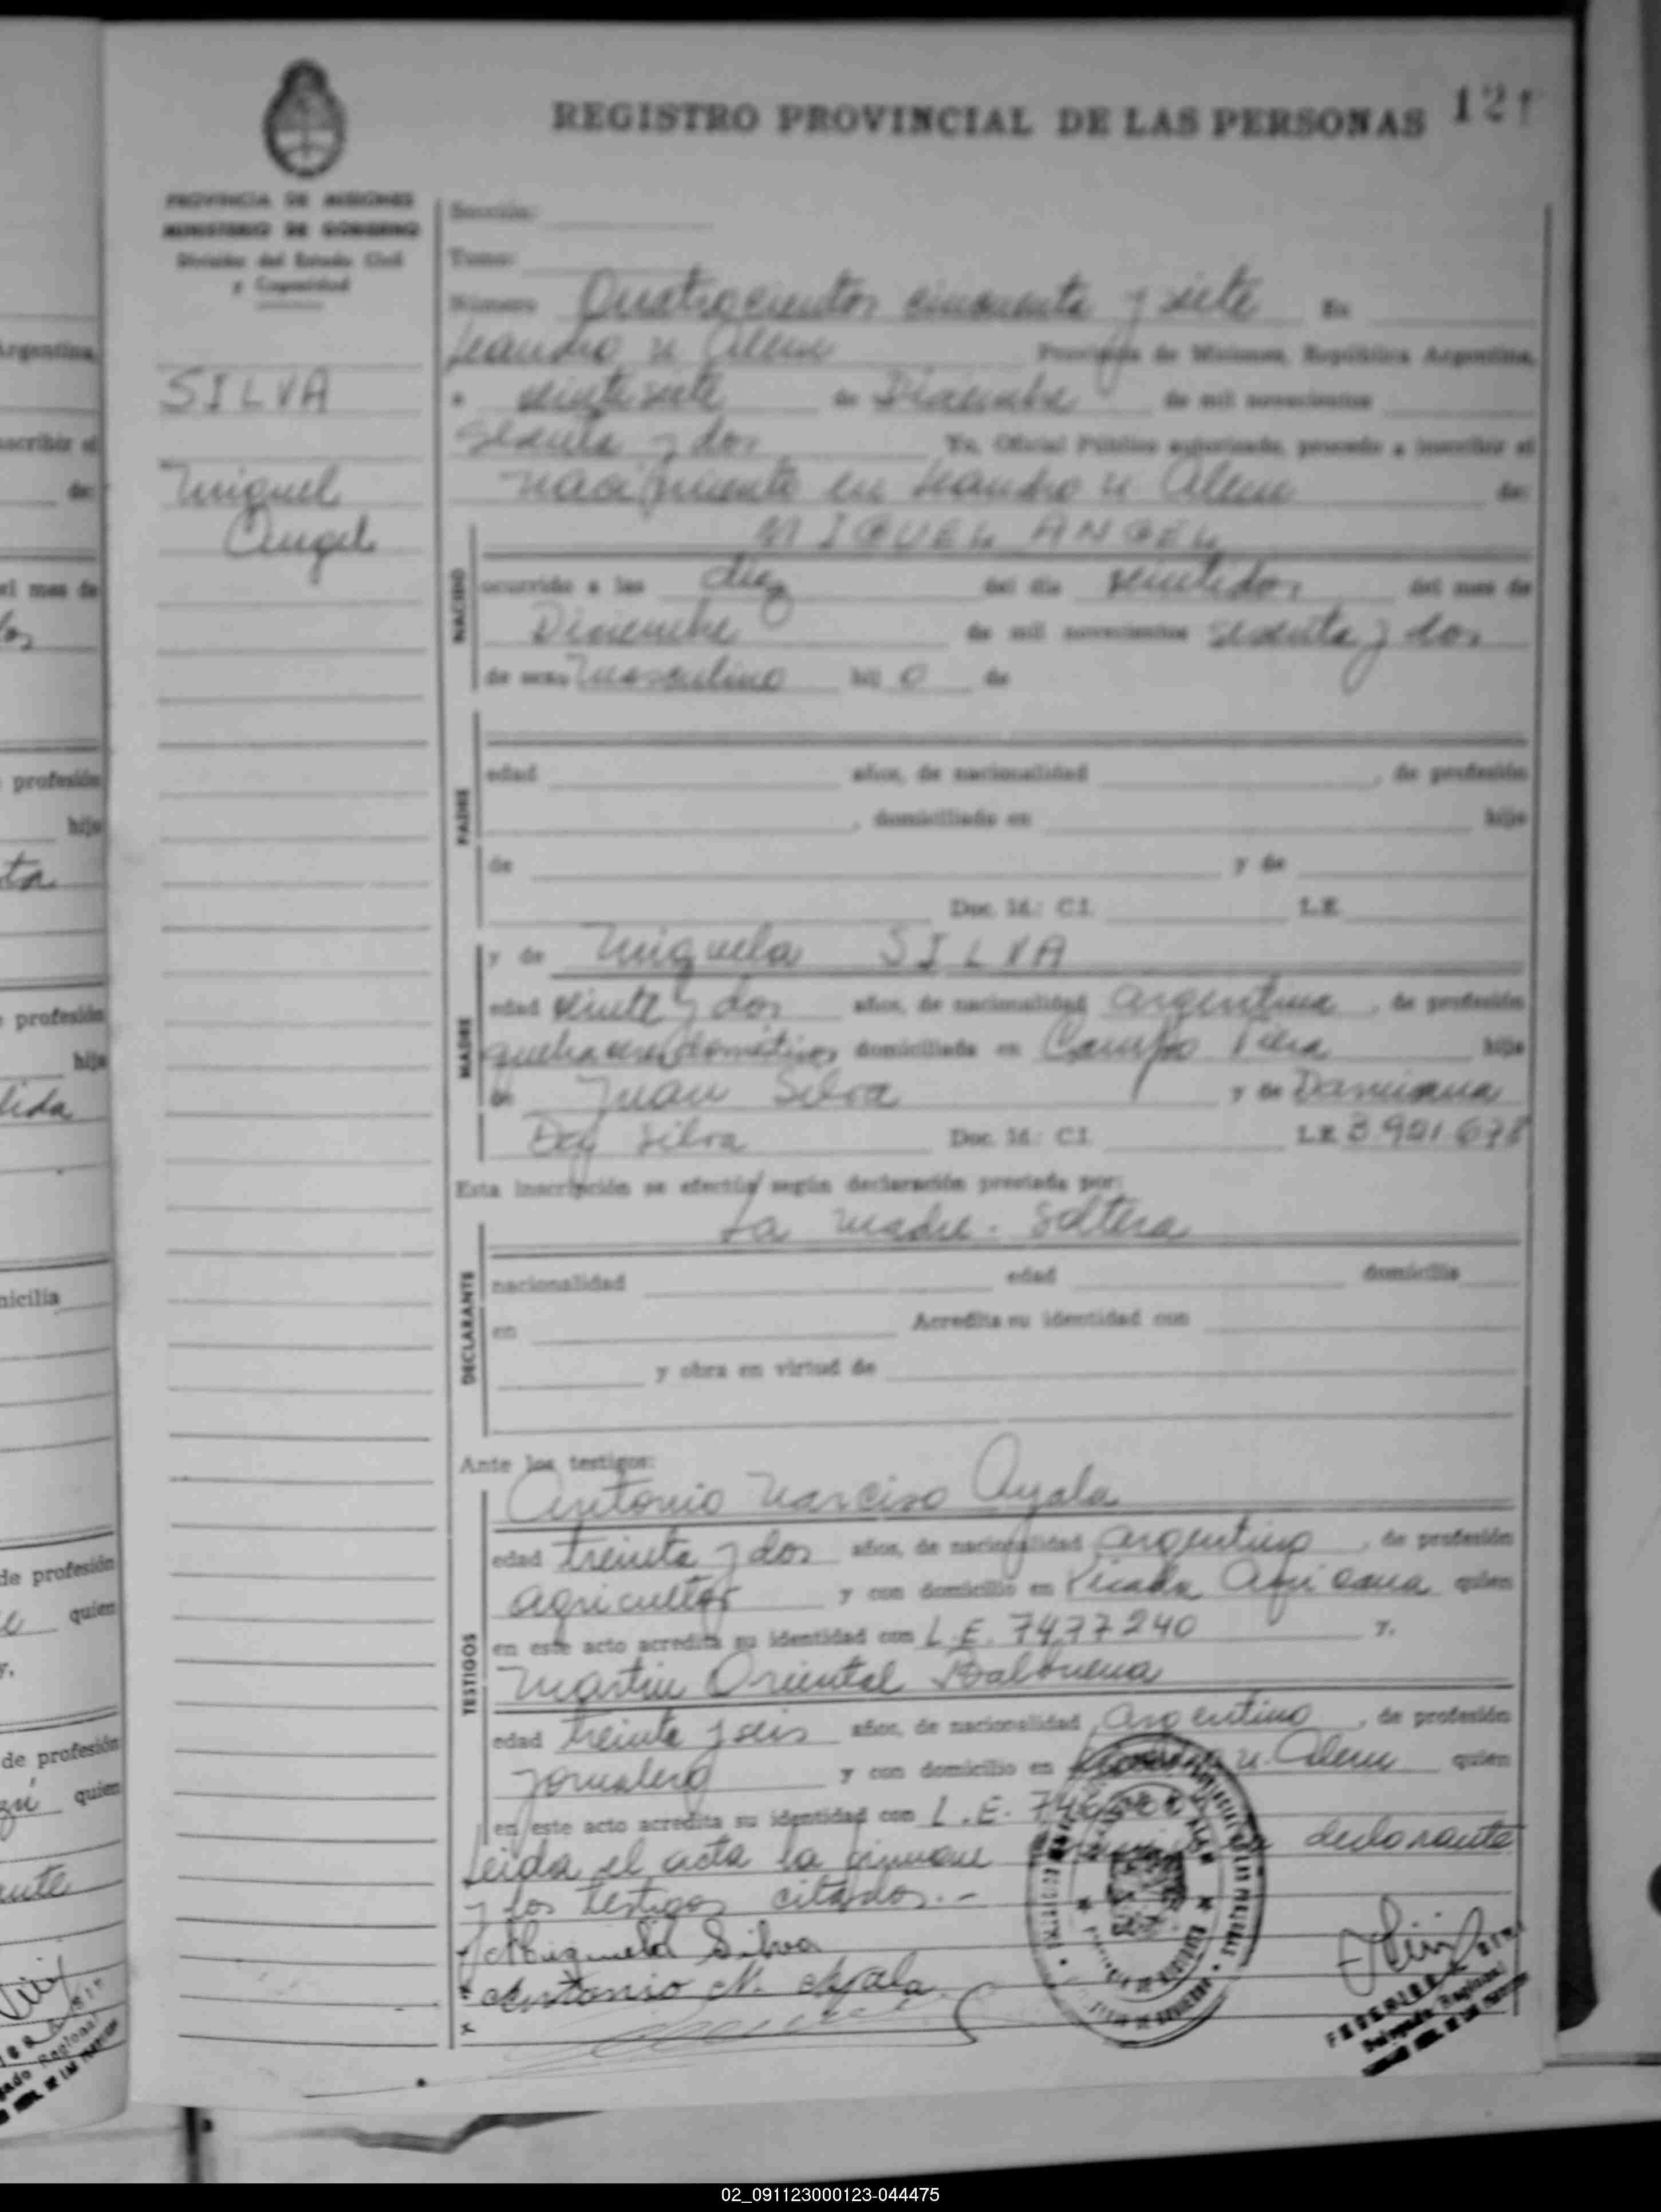 REGISTRO PROVINCIAL DE LAS PERSONAS 121
PROVINCIA DE MISIONES
MINISTERIO DE GOBIERNO
División del Estado Civil
y Capacidad
SILVA
Miguel
Angel
Sección:
Tomo:
Número Cuatrocientos cincuenta y siete En
Leandro N Alem Provincia de Misiones, República Argentina,
a veintisiete de Diciembre de mil novecientos
sesenta y dos Yo, Oficial Público autorizado, procedo a inscribir el
nacimiento en Leandro N Alem de:
MIGUEL ANGEL
NACIDO
ocurrido a las diez del día veintidos del mes de
Diciembre de mil novecientos sesenta y dos
de sexo masculino hij o de
PADRE
edad años, de nacionalidad , de profesión
, domiciliado en hijo
de y de
Doc. Id.: C.I. L.E.
MADRE
y de Miguela SILVA
edad veinte y dos años, de nacionalidad argentina , de profesión
quehaceres domésticos domiciliada en Campo Viera hija
de Juan Silva y de Damiana
Silva Doc. Id.: C.I. L.E.
Esta inscripción se efectúa según declaración prestada por:
La madre. Soltera
DECLARANTE
nacionalidad edad domicilio
en Acredita su identidad con
y obra en virtud de
Ante los testigos:
TESTIGOS
Antonio Narciso Ayala
edad treinta y dos años, de nacionalidad argentino , de profesión
agricultor y con domicilio en Picada quien
en este acto acredita su identidad con L.E. 7477240 y,
Martin Oriental Balbuena
edad treinta y seis años, de nacionalidad argentino , de profesión
jornalero y con domicilio en N. Alem quien
en este acto acredita su identidad con L.E.
Leida el acta la firman declarante
y los testigos citados.-
Miguela Silva
x Antonio N. Ayala
x
Argentina,
inscribir el
de:
el mes de
profesión
hijo
profesión
hija
domicilia
de profesión
quien
y,
de profesión
quien
02_091123000123-044475